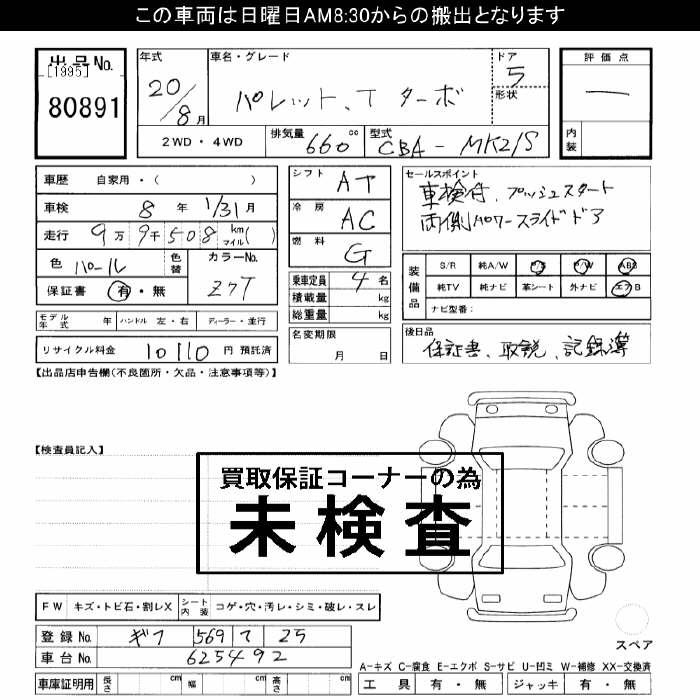 この車両は日曜日AM8:30からの搬出となります
出品No.
[1995]
80891
年式
20/8月
車名・グレード
パレット、T ターボ
ドア
5
形状
評価点
―
内装
2WD・4WD
排気量 660 cc
型式 CBA-MK21S
車歴 自家用・( )
車検 8年 1/31月
走行 9万9千508 km マイル( )
色 パール
色替
カラーNo.
Z7T
保証書 有・無
モデル年式 年 ハンドル 左・右 ディーラー・並行
リサイクル料金 10110 円 預託済
シフト AT
冷房 AC
燃料 G
乗車定員 4 名
積載量 kg
総重量 kg
名変期限
月 日
セールスポイント
車検付、プッシュスタート
両側パワースライドドア
装備品
S/R 純A/W P/S P/W ABS
純TV 純ナビ 革シート 外ナビ エアB
ナビ型番:
後日品
保証書、取説、記録簿
【出品店申告欄(不良箇所・欠品・注意事項等)】
【検査員記入】
買取保証コーナーの為
未検査
FW キズ・トビ石・割レX シート内装 コゲ・穴・汚レ・シミ・破レ・スレ
登録No. ギフ 569 ワ 25
車台No. 625492
車庫証明用 長さ cm 幅 cm 高さ cm
スペア
A-キズ C-腐食 E-エクボ S-サビ U-凹ミ W-補修 XX-交換済
工具 有・無 ジャッキ 有・無